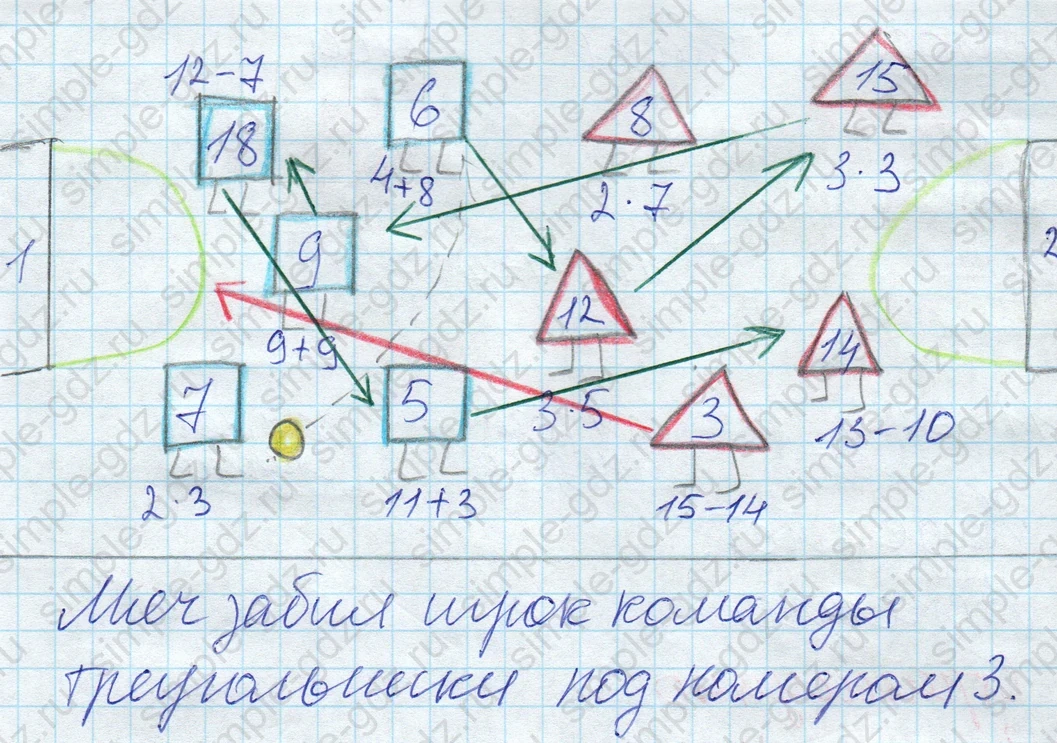 12-7
18
6
8
15
4+8
2·7
3·3
1
9
2
12
9+9
14
7
5
3·5
3
13-10
2·3
11+3
15-14
Мяч забил игрок команды
треугольники под номером 3.
simple-gdz.ru